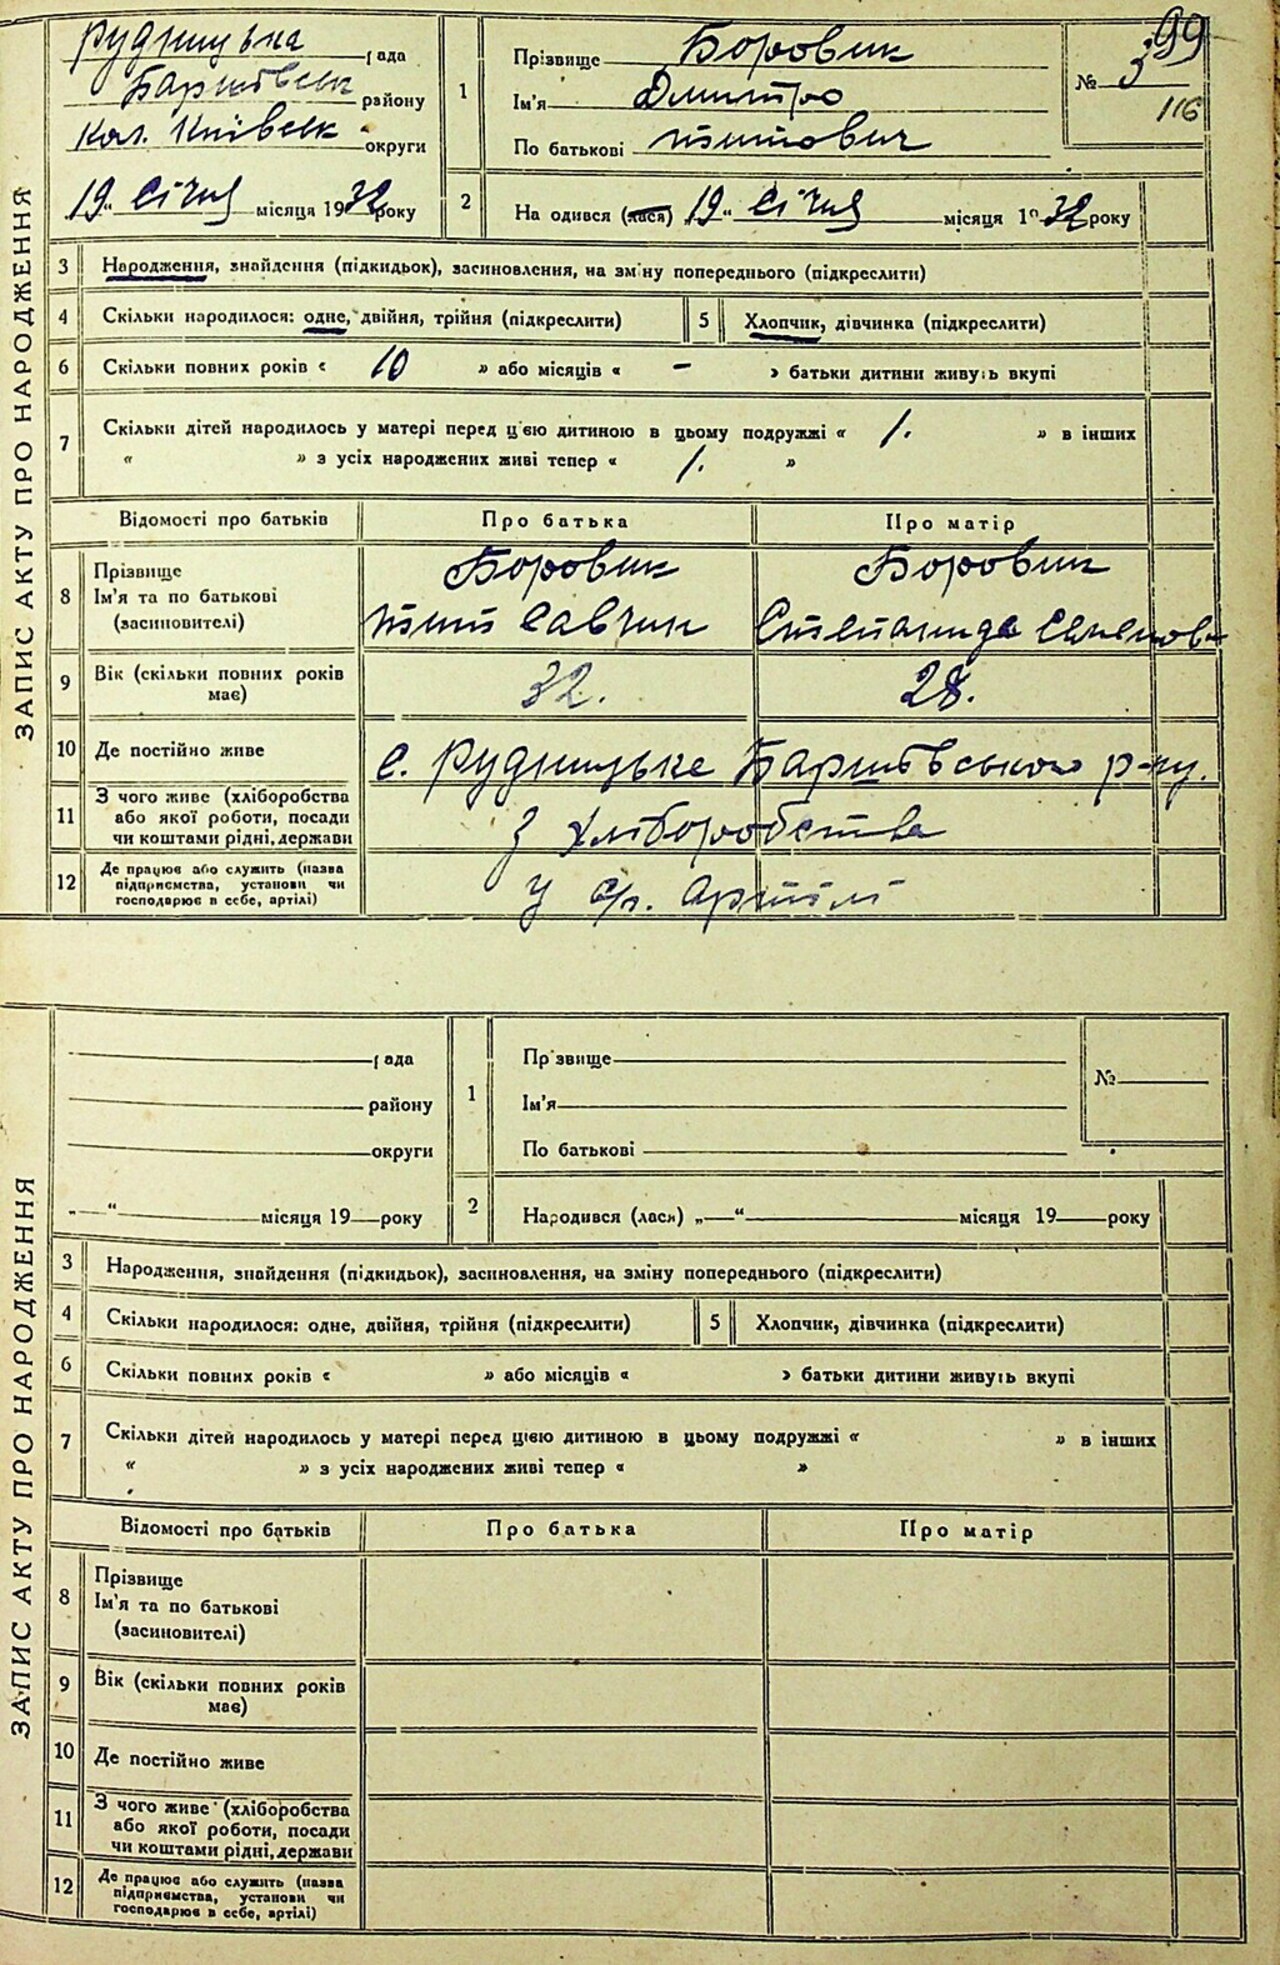 99
116
ЗАПИС АКТУ ПРО НАРОДЖЕННЯ
Рудницька рада
Баришівськ району
кол. Київськ округи
„19“ Січня місяця 1932 року
1
Прізвище Боровик
Ім'я Дмитро
По батькові Титович
№ 3
2
На одився (лася) „19“ Січня місяця 1932 року
3 Народження, знайдення (підкидьок), засиновлення, на зміну попереднього (підкреслити)
4 Скільки народилося: одне, двійня, трійня (підкреслити) 5 Хлопчик, дівчинка (підкреслити)
6 Скільки повних років « 10 » або місяців « – » батьки дитини живуть вкупі
7 Скільки дітей народилось у матері перед цією дитиною в цьому подружжі « 1. » в інших
“ » з усіх народжених живі тепер « 1. »
Відомості про батьків Про батька Про матір
8 Прізвище Боровик Боровик
Ім'я та по батькові Тит Савчик Степанида
(засиновителі)
9 Вік (скільки повних років має) 32. 28.
10 Де постійно живе с. Рудницьке Баришівського р-ну.
11 З чого живе (хліборобства
або якої роботи, посади
чи коштами рідні, держави
З хліборобства
12 Де працює або служить (назва
підприємства, установи чи
господарює в себе, артілі)
у с/г. артілі
ЗАПИС АКТУ ПРО НАРОДЖЕННЯ
рада
району
округи
„ “ місяця 19 року
1
Прізвище
Ім'я
По батькові
№
2
Народився (лася) „ “ місяця 19 року
3 Народження, знайдення (підкидьок), засиновлення, на зміну попереднього (підкреслити)
4 Скільки народилося: одне, двійня, трійня (підкреслити) 5 Хлопчик, дівчинка (підкреслити)
6 Скільки повних років « » або місяців « » батьки дитини живуть вкупі
7 Скільки дітей народилось у матері перед цією дитиною в цьому подружжі « » в інших
“ » з усіх народжених живі тепер « »
Відомості про батьків Про батька Про матір
8 Прізвище
Ім'я та по батькові
(засиновителі)
9 Вік (скільки повних років
має)
10 Де постійно живе
11 З чого живе (хліборобства
або якої роботи, посади
чи коштами рідні, держави
12 Де працює або служить (назва
підприємства, установи чи
господарює в себе, артілі)